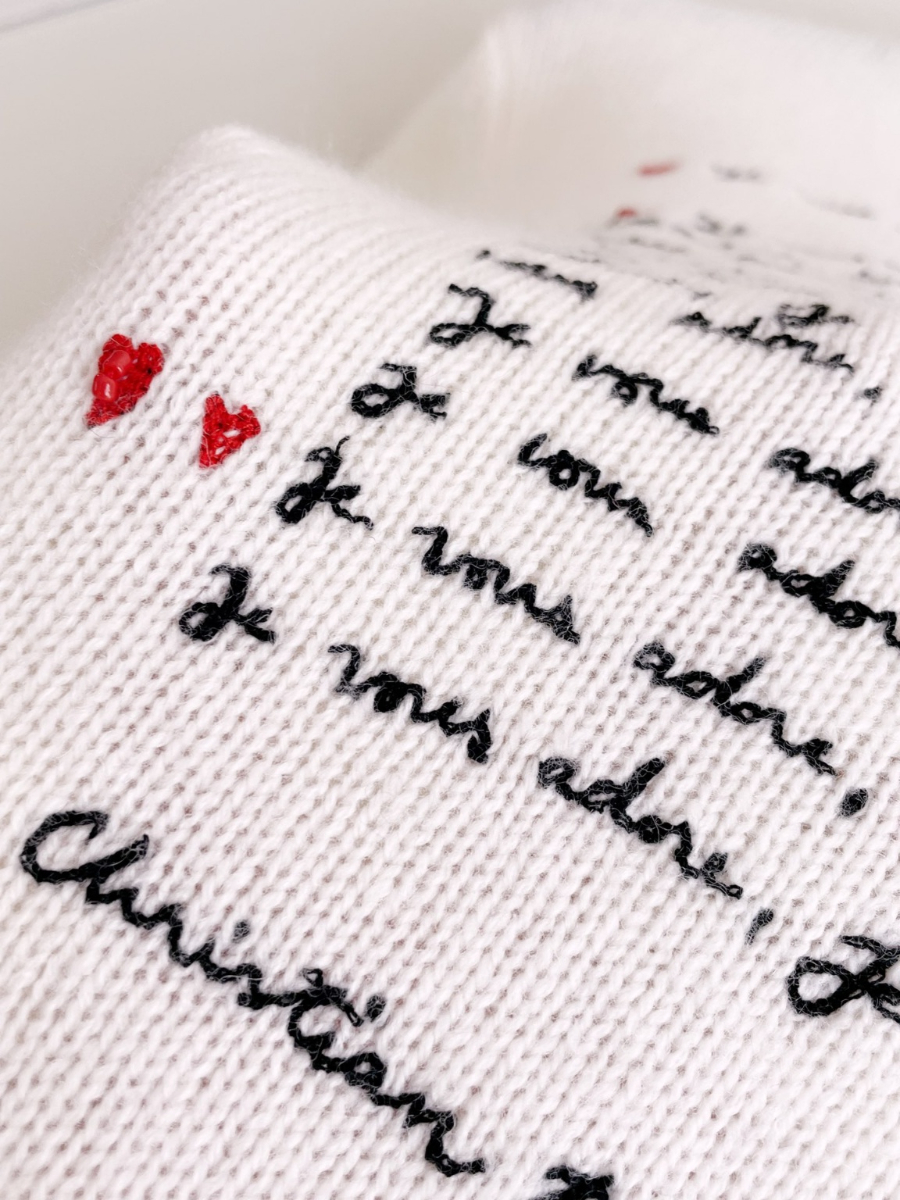 Je adore,
Je vous
Je vous ador
Je vous adore,
Je vous adore, Je
Christian